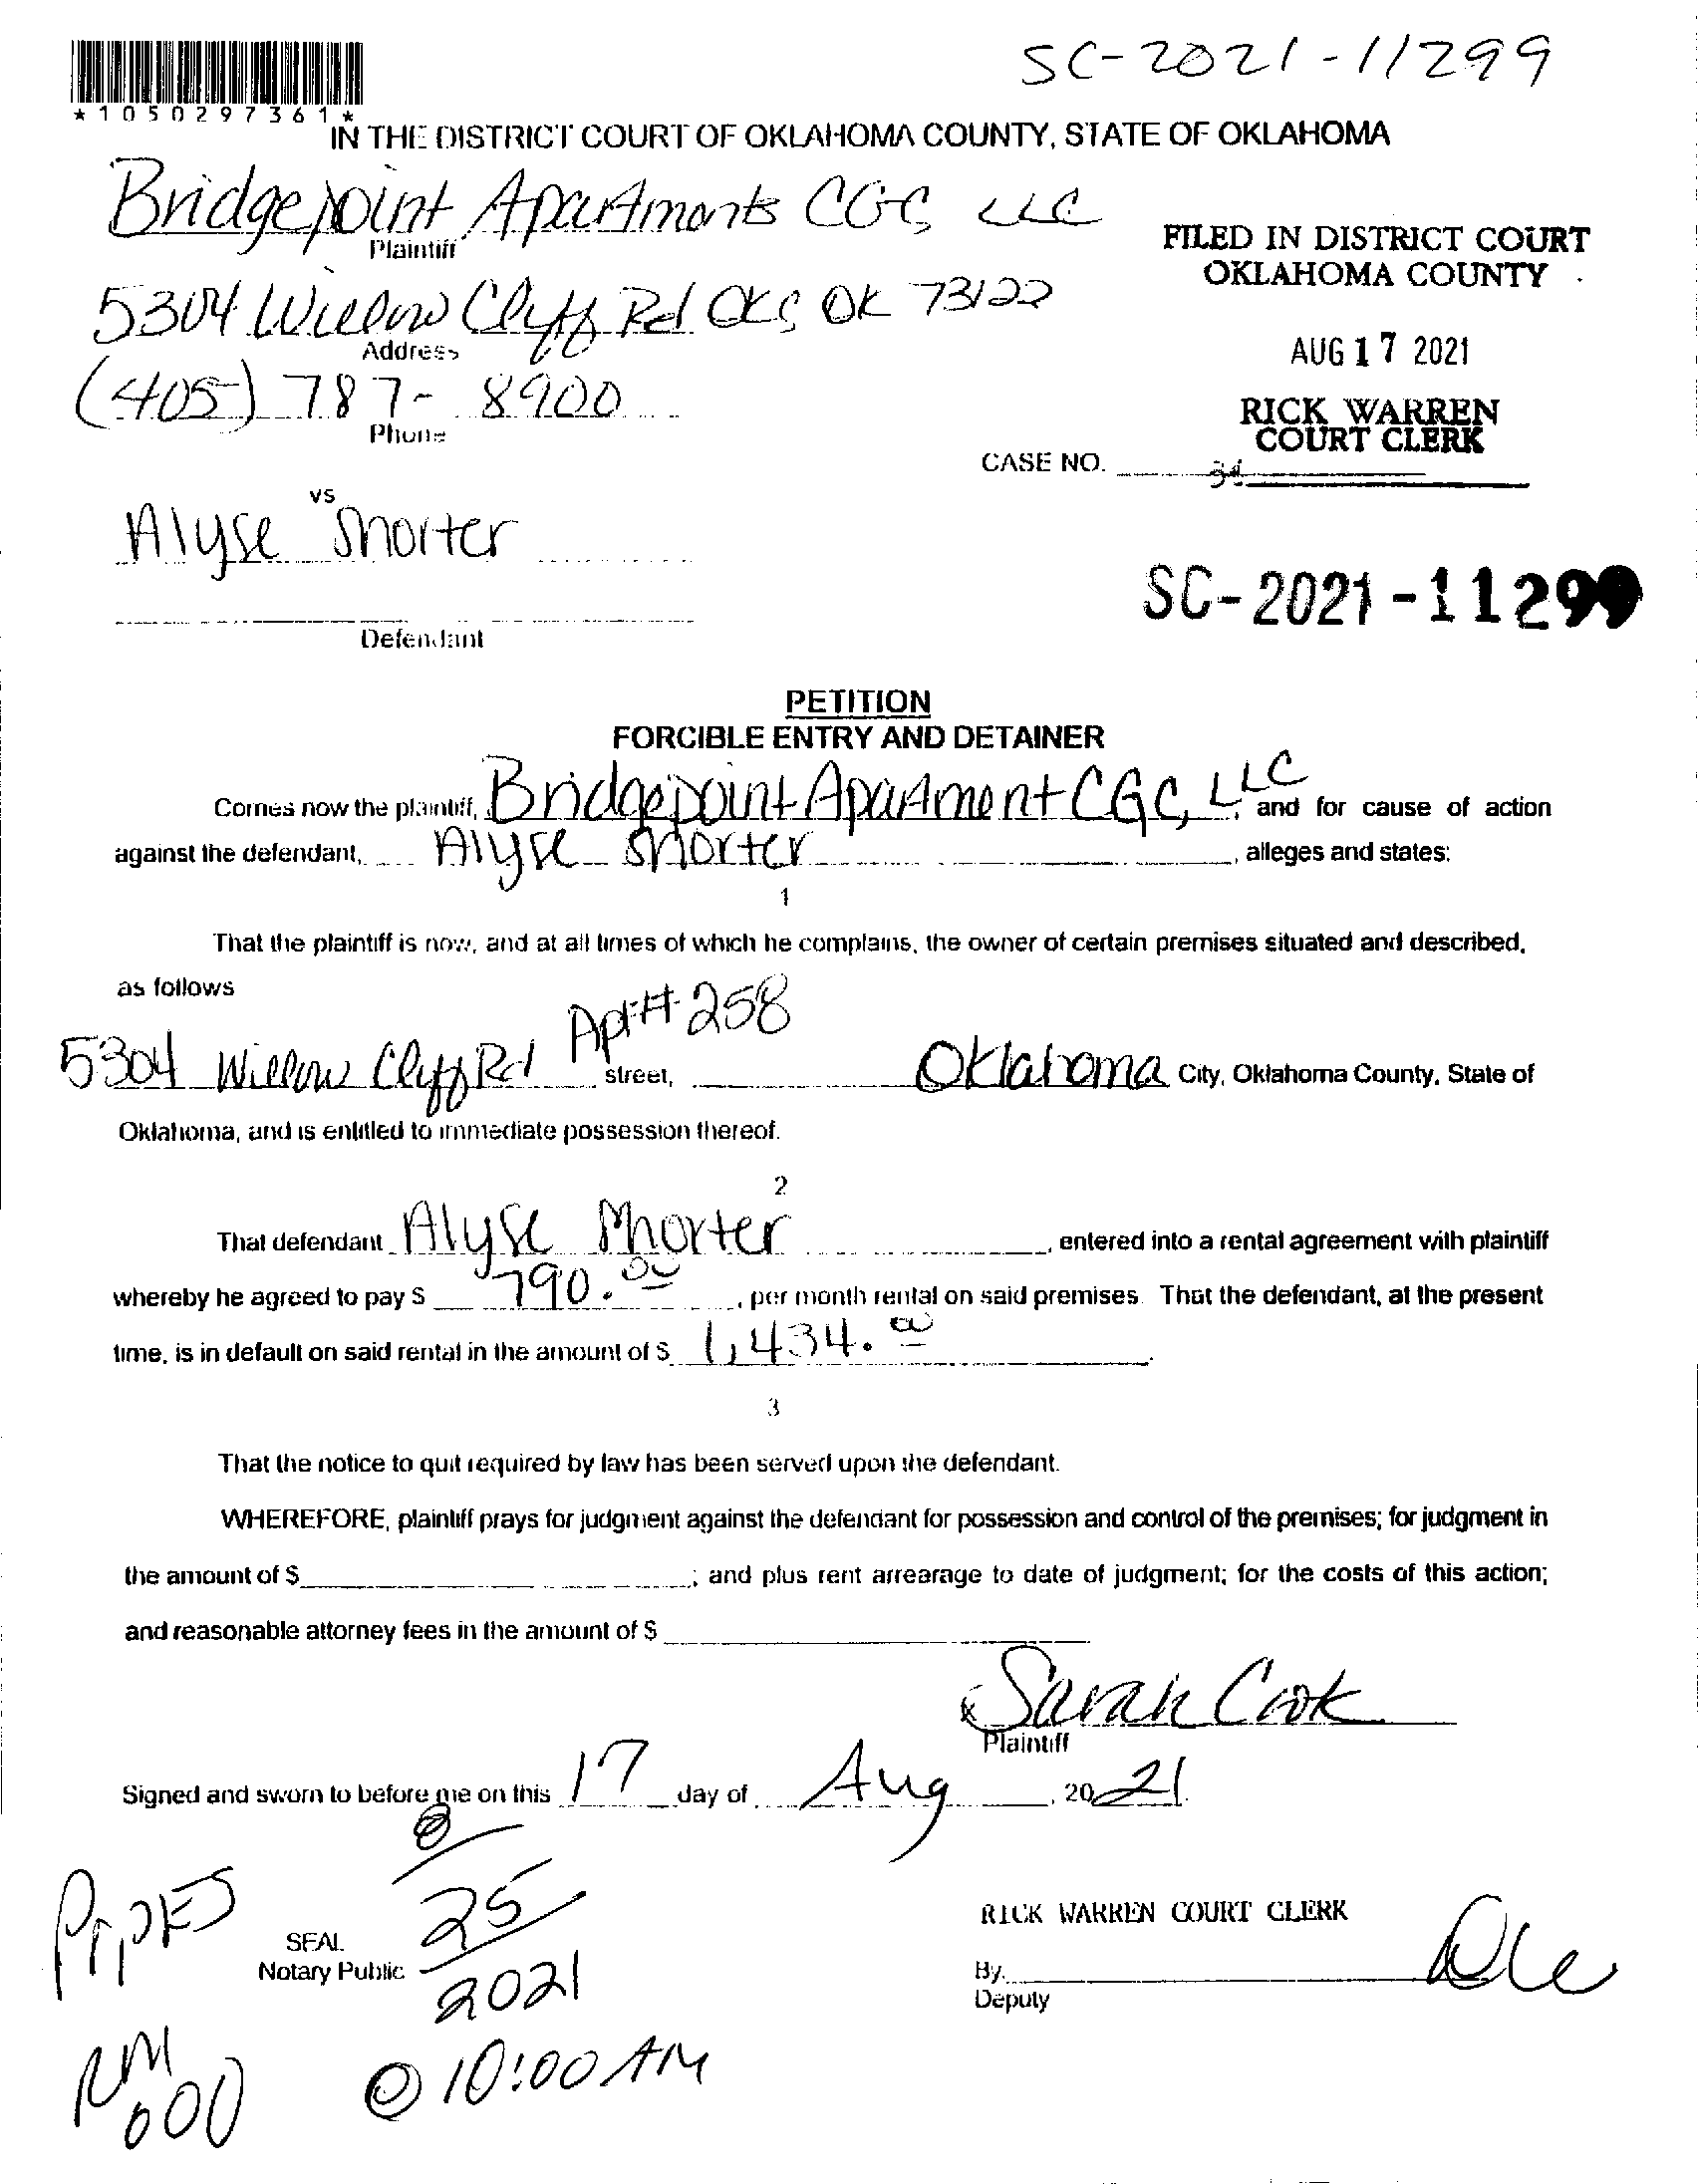 SC-2021-11299
*1050297361*
IN THE DISTRICT COURT OF OKLAHOMA COUNTY, STATE OF OKLAHOMA
Bridgepoint Apartments CGC, LLC
Plaintiff
FILED IN DISTRICT COURT
OKLAHOMA COUNTY
5304 Willow Cliff Rd OKC OK 73122
Address
AUG 17 2021
(405) 787-8900
Phone
RICK WARREN
COURT CLERK
CASE NO.
34
vs
Alyse Shorter
SC-2021-11299
Defendant
PETITION
FORCIBLE ENTRY AND DETAINER
Comes now the plaintiff, Bridgepoint Apartment CGC, LLC, and for cause of action
against the defendant, Alyse Shorter, alleges and states:
1
That the plaintiff is now, and at all times of which he complains, the owner of certain premises situated and described,
as follows
Apt# 258
5304 Willow Cliff Rd street, Oklahoma City, Oklahoma County, State of
Oklahoma, and is entitled to immediate possession thereof.
2
That defendant Alyse Shorter, entered into a rental agreement with plaintiff
whereby he agreed to pay $ 790.00, per month rental on said premises. That the defendant, at the present
time, is in default on said rental in the amount of $ 1,434.00.
3
That the notice to quit required by law has been served upon the defendant.
WHEREFORE, plaintiff prays for judgment against the defendant for possession and control of the premises; for judgment in
the amount of $ ; and plus rent arrearage to date of judgment; for the costs of this action;
and reasonable attorney fees in the amount of $
x Sarah Cook
Plaintiff
Signed and sworn to before me on this 17 day of Aug, 2021.
8/25/2021
SEAL
Notary Public
RICK WARREN COURT CLERK
By
Deputy
@ 10:00 AM